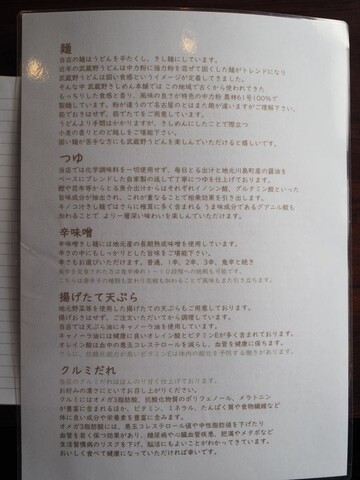 麺
当店の麺はうどんを平たくし、きし麺にしています。
近年の武蔵野うどんは中力粉に強力粉を混ぜて固くした麺がトレンドになり
武蔵野うどんは固い食感というイメージが定着してきました。
そんな中 武蔵野きしめん本舗では この地域で古くから使われてきた
もっちりした食感と香り、風味の良さが特色の中力粉 農林61号100%で
製麺しています。粉が違うので名古屋のとはまた趣が違いますがご理解下さい。
茹でおきはせず、茹でたてをご用意しています。
うどんより手間はかかりますが、きしめんにしたことで際立つ
小麦の香りとのど越しをご堪能下さい。
固い麺が苦手な方にも武蔵野うどんを楽しんでいただけると嬉しいです。
つゆ
当店では化学調味料を一切使用せず、毎日とる出汁と地元川島町産の醤油を
ベースにブレンドした自家製の返しで丁寧につゆを仕上げております。
鰹や昆布等からとる魚介出汁からはそれぞれイノシン酸、グルタミン酸といった
旨味成分が抽出され、これが重なることで相乗効果を引き出します。
キノコ汁きし麺ではさらに椎茸に多く含まれる うま味成分であるグアニル酸も
加わることで より一層深い味わいを楽しんでいただけます。
辛味噌
辛味噌きし麺には地元産の長期熟成味噌を使用しています。
辛さの中にもしっかりとした旨味をご堪能下さい。
辛さもお選びいただけます。普通、1辛、2辛、3辛、鬼辛と続き
揚げたて天ぷら
地元野菜等を使用した揚げたての天ぷらもご用意しております。
揚げおきはせず、ご注文いただいてから調理しています。
当店では天ぷら油にキャノーラ油を使用しています。
キャノーラ油には健康に良いオレイン酸とビタミンEが多く含まれております。
オレイン酸は血中の悪玉コレステロールを減らし、血管を健康に保ちます。
さらに、抗酸化能力が高いビタミンEは体内の酸化を予防する働きがあります。
クルミだれ
当店のクルミだれはほんのり甘く仕上げております。
お好みの濃さにといてお召し上がりください。
クルミにはオメガ3脂肪酸、抗酸化物質のポリフェノール、メラトニン
が豊富に含まれるほか、ビタミン、ミネラル、たんぱく質や食物繊維など
体に良い成分や栄養素を豊富に含みます。
オメガ3脂肪酸には、悪玉コレステロール値や中性脂肪値を下げたり
血管を若く保つ効果があり、糖尿病や心臓血管疾患、肥満やメタボなど
生活習慣病のリスクを下げ、脳活にもよいことがわかってきています。
おいしく食べて健康になっていただければ幸いです。